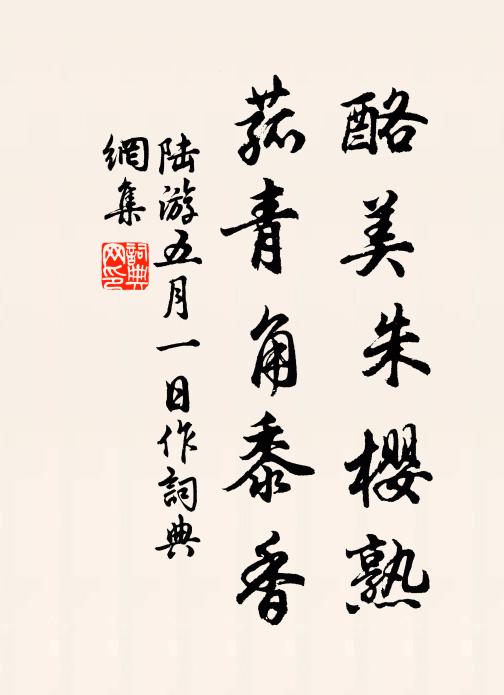 酪美朱櫻熟
菰青角黍香
陸游五月一日作詞典
網集
詞典
网印